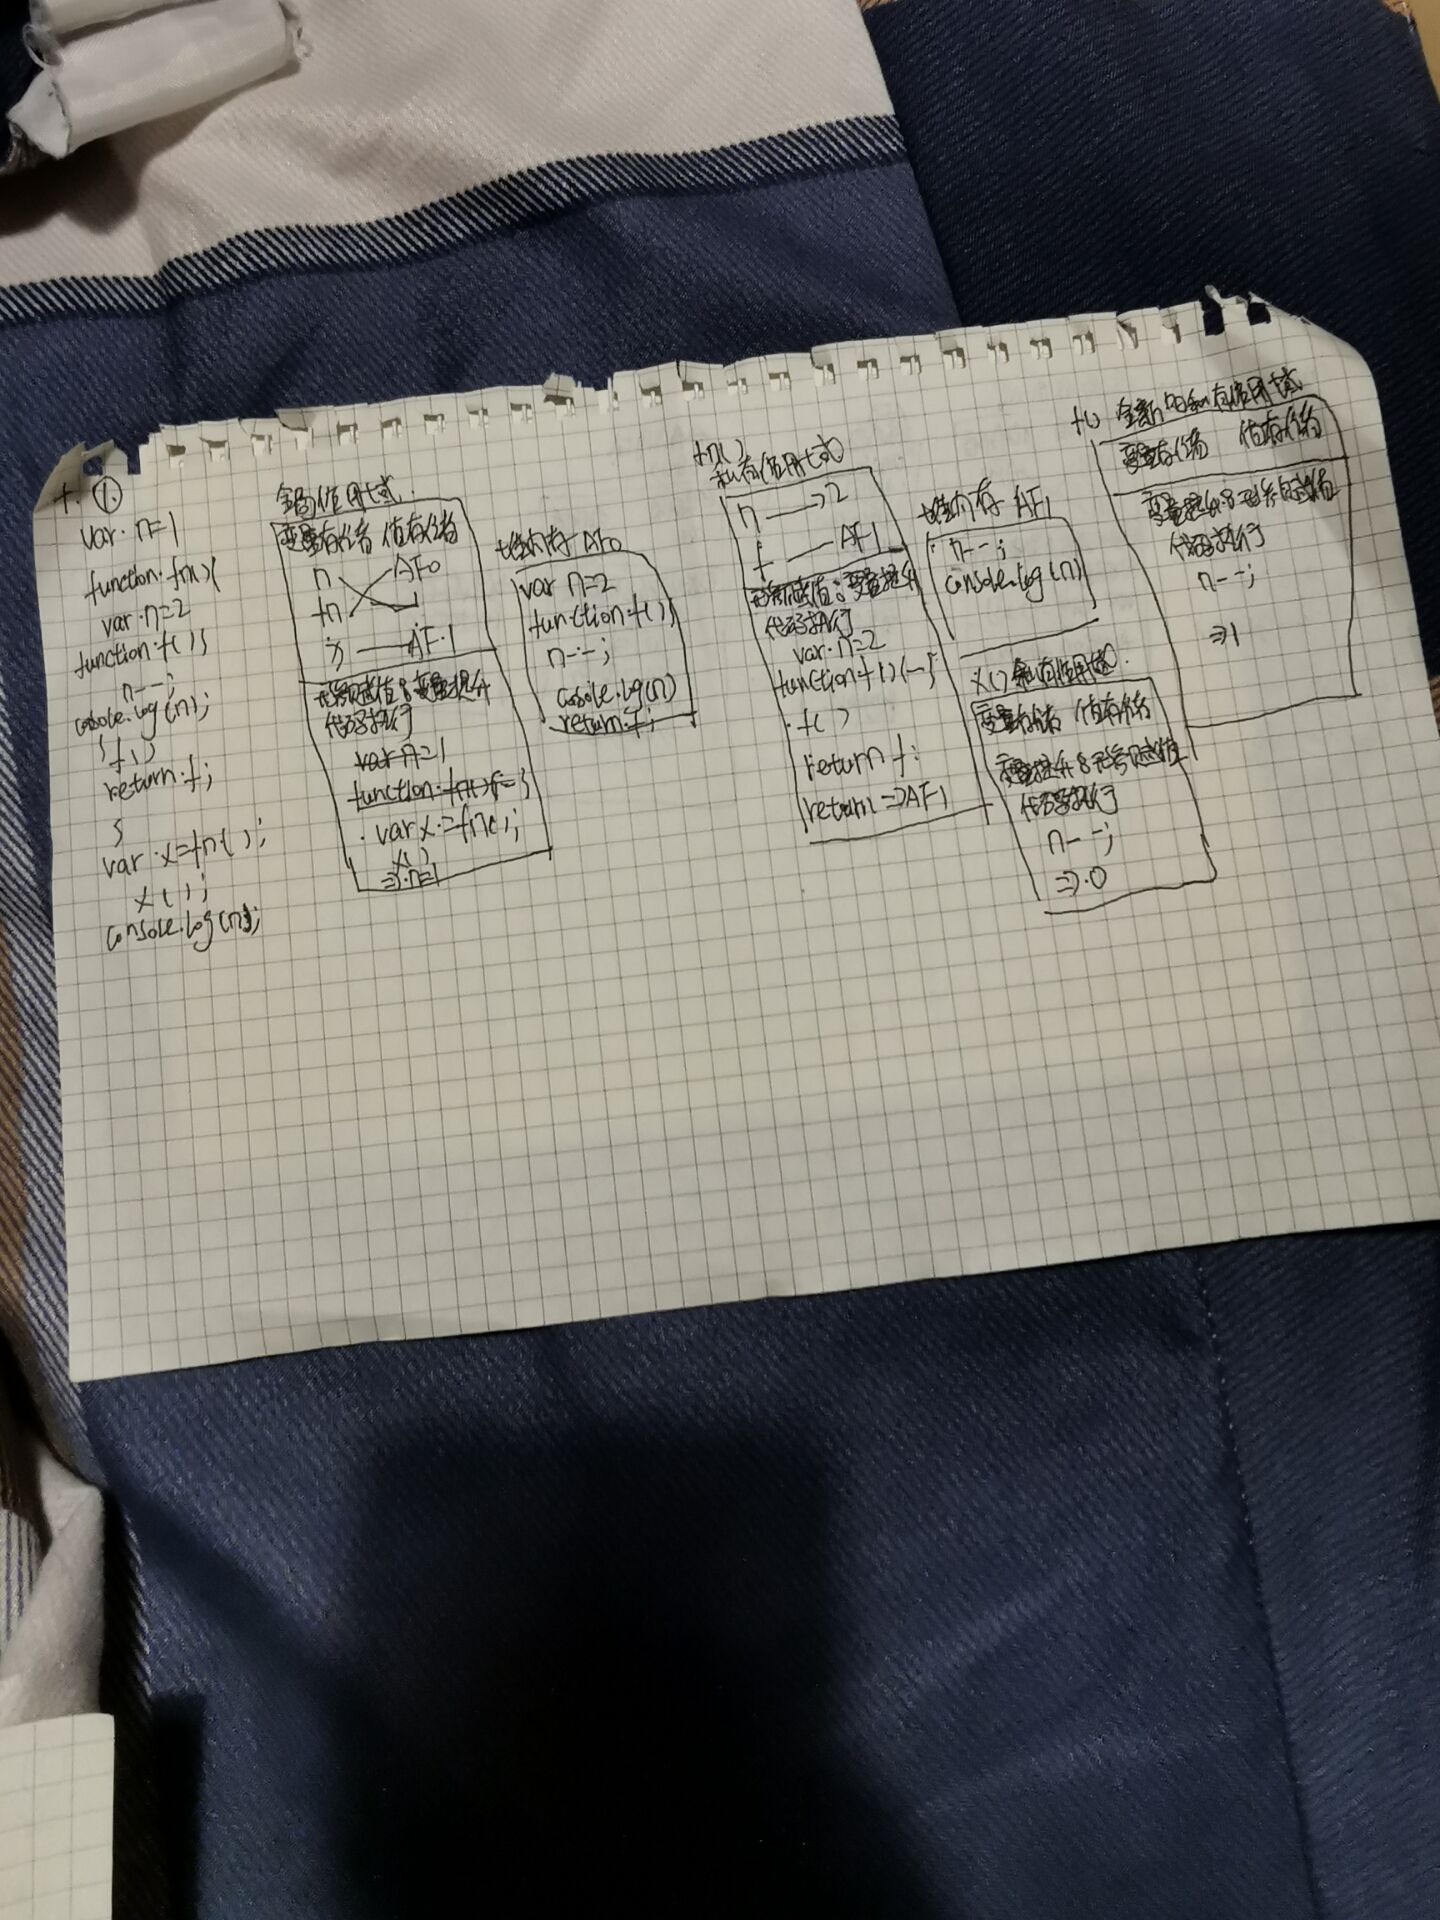 十. ①.
var n=1
function fn(){
var n=2
function f(){
n--;
console.log(n);
} f()
return f;
}
var x=fn();
x();
console.log(n);
全局作用域
变量存储 值存储
n AF0
fn 1
x AF1
形参赋值&变量提升
代码执行
var n=1
function fn(){ }
var x=fn();
x();
=> n=1
堆内存 AF0
var n=2
function f(){
n--;
cosole.log(n)
return f;
fn()
私有作用域
n 2
f AF1
形参赋值&变量提升
代码执行
var n=2
function f(){ }
f()
return f;
return =>AF1
堆内存 AF1
n--;
console.log(n)
x() 私有作用域
变量存储 值存储
变量提升&形参赋值
代码执行
n--;
=>0
f() 全新的私有作用域
变量存储 值存储
变量提升&形参赋值
代码执行
n--;
=>1